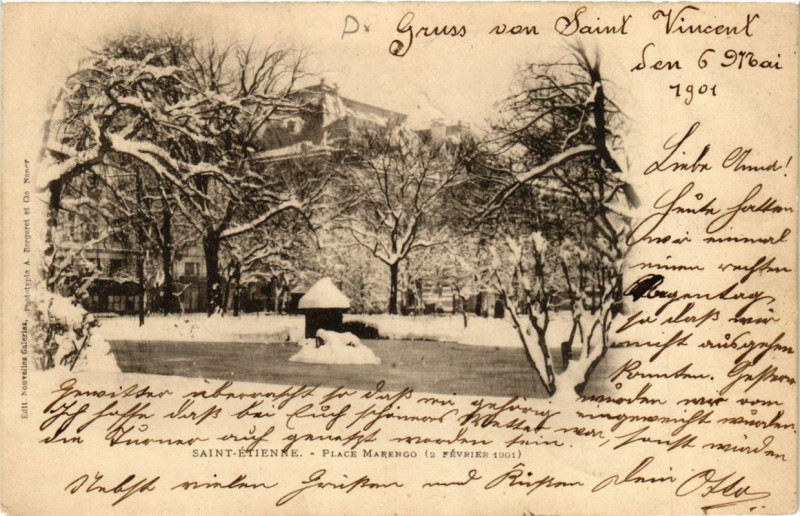 Gruss von Saint Vincent
den 6 Mai
1901
Liebe Anna!
Heute hatten
wir einmal
einen rechten
Regentag,
so daß wir
nicht ausgehen
konnten. Gestern
wurden wir vom
Gewitter überrascht so daß wir gehörig eingeweicht wurden.
Ich hoffe daß bei Euch schöneres Wetter war, sonst würden
die Turner auf genetzt worden sein.
SAINT-ÉTIENNE. - PLACE MARENGO (2 FÉVRIER 1901)
Nebst vielen Grüßen und Küßen Dein Otto
Edit. Nouvelles Galeries, Phototypie A. Bergeret et Cie Nancy